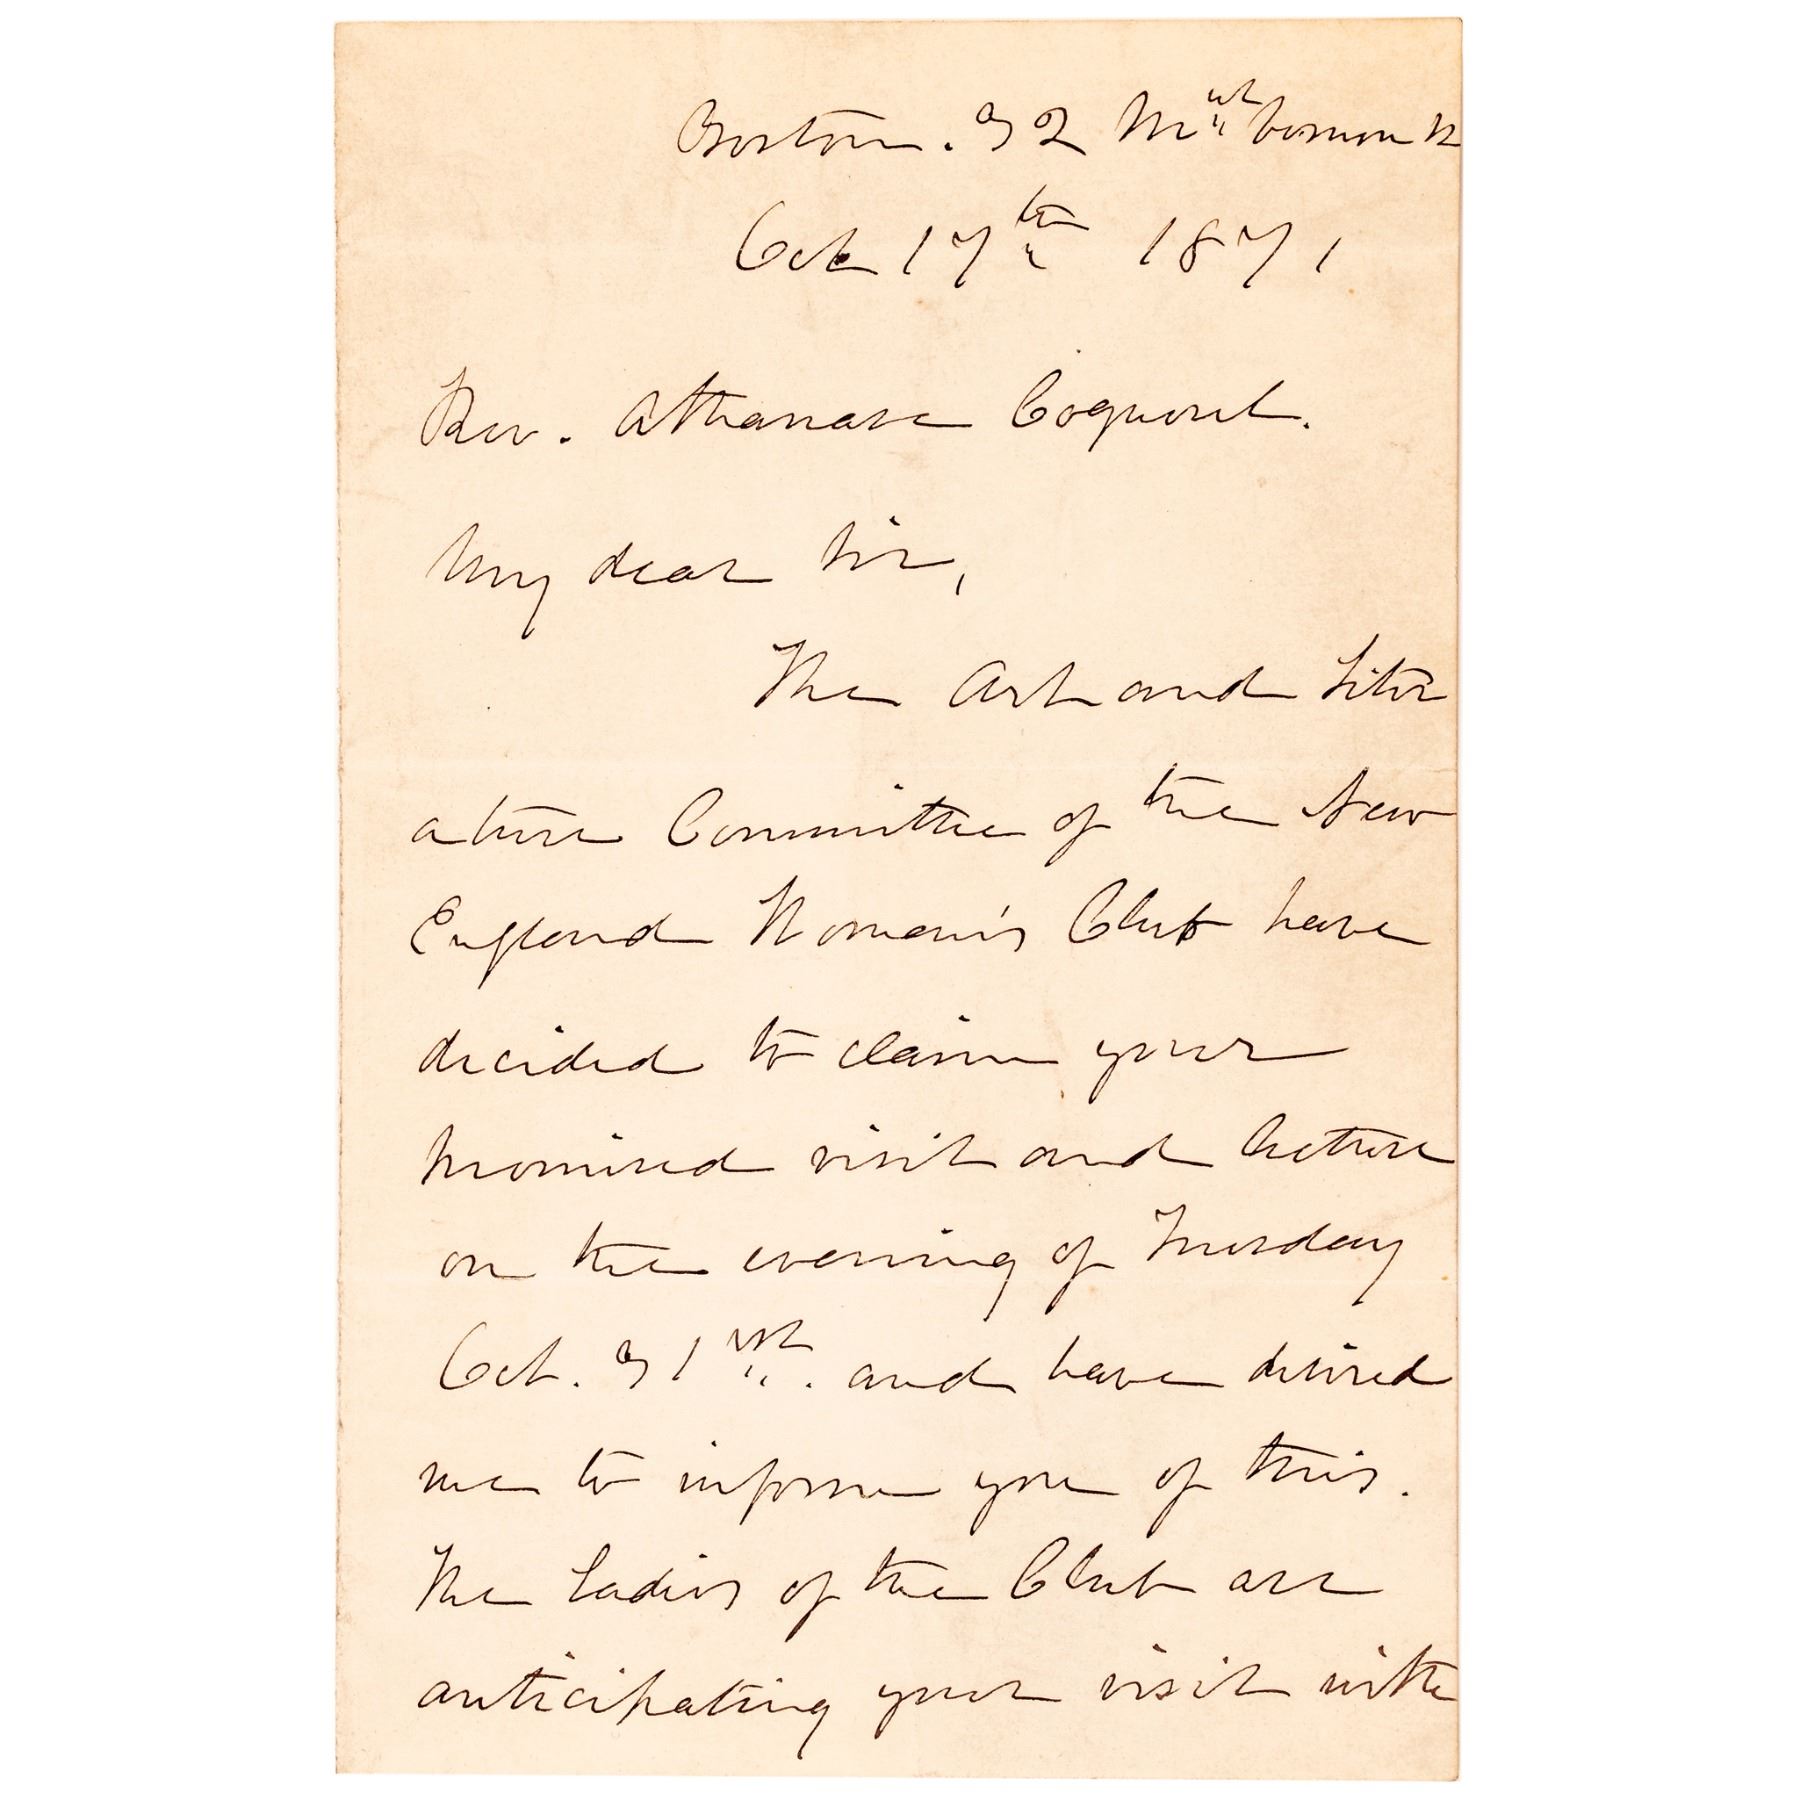 Boston. 32 Mt. Vernon St
Oct 17th 1871
Rev. Athanase Coquerel.
My dear Sir,
The Art and Liter
ature Committee of the New
England Woman's Club have
decided to claim your
promised visit and lecture
on the evening of Tuesday
Oct. 31st. and have desired
me to inform you of this.
The Ladies of the Club are
anticipating your visit with